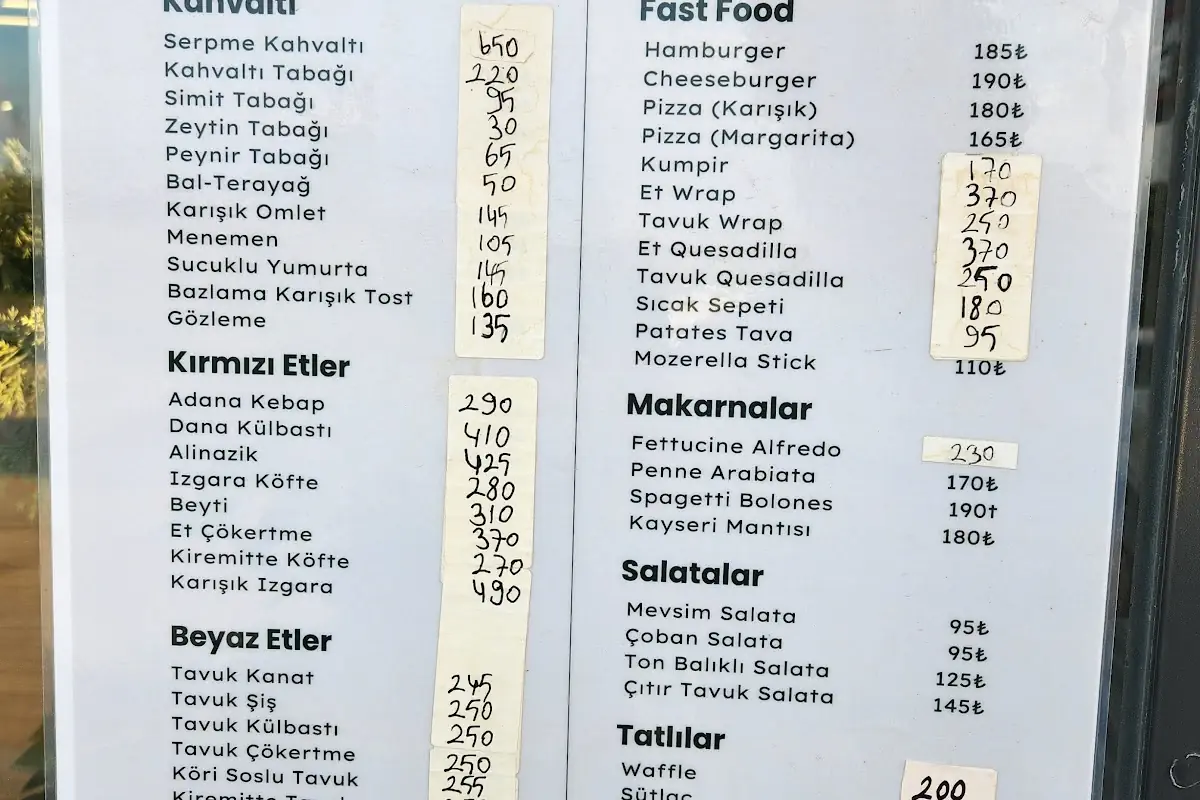 Kahvaltı
Serpme Kahvaltı 650
Kahvaltı Tabağı 220
Simit Tabağı 95
Zeytin Tabağı 30
Peynir Tabağı 65
Bal-Terayağ 50
Karışık Omlet 145
Menemen 105
Sucuklu Yumurta 145
Bazlama Karışık Tost 160
Gözleme 135
Kırmızı Etler
Adana Kebap 290
Dana Külbastı 410
Alinazik 425
Izgara Köfte 280
Beyti 310
Et Çökertme 370
Kiremitte Köfte 270
Karışık Izgara 490
Beyaz Etler
Tavuk Kanat 245
Tavuk Şiş 250
Tavuk Külbastı 250
Tavuk Çökertme 250
Köri Soslu Tavuk 255
Kiremitte
Fast Food
Hamburger 185₺
Cheeseburger 190₺
Pizza (Karışık) 180₺
Pizza (Margarita) 165₺
Kumpir 170
Et Wrap 370
Tavuk Wrap 250
Et Quesadilla 370
Tavuk Quesadilla 250
Sıcak Sepeti 180
Patates Tava 95
Mozerella Stick 110₺
Makarnalar
Fettucine Alfredo 230
Penne Arabiata 170₺
Spagetti Bolones 190t
Kayseri Mantısı 180₺
Salatalar
Mevsim Salata 95₺
Çoban Salata 95₺
Ton Balıklı Salata 125₺
Çıtır Tavuk Salata 145₺
Tatlılar
Waffle 200
Sütlaç